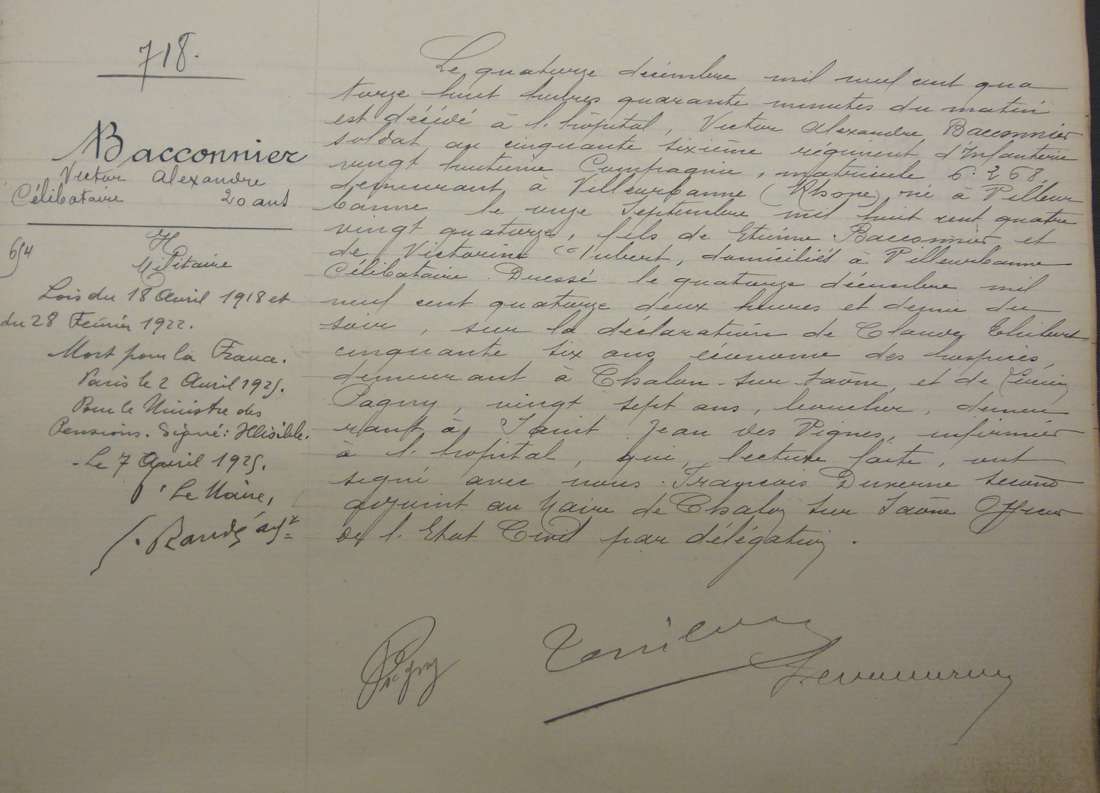 718.
Bacconnier
Victor Alexandre
Célibataire 20 ans
654
Militaire
Lois du 18 Avril 1918 et
du 28 Février 1922.
Mort pour la France.
Paris le 2 Avril 1925.
Pour le Ministre des
Pensions. Signé: Illisible.
Le 7 Avril 1925.
Le Maire,
Le quatorze décembre mil neuf cent qua
torze huit heures quarante minutes du matin
est décédé à l'hôpital, Victor Alexandre Bacconnier
soldat au cinquante sixième régiment d'Infanterie
vingt huitième Compagnie, matricule 6.268,
demeurant à Villeurbanne (Rhône) né à Villeur
banne le onze Septembre mil huit cent quatre
vingt quatorze, fils de Etienne Bacconnier et
de Victorine domiciliés à Villeurbanne
Célibataire. Dressé le quatorze décembre mil
neuf cent quatorze deux heures et demie du
soir, sur la déclaration de
cinquante six ans, économe des hospices,
demeurant à Chalon-sur-Saône, et de
Pagny, vingt sept ans, boucher, demeu
rant à Saint Jean des Vignes, infirmier
à l'hôpital, qui, lecture faite, ont
signé avec nous François Duverne second
adjoint au Maire de Chalon sur Saône Officier
de l'Etat Civil par délégation.
Pagny